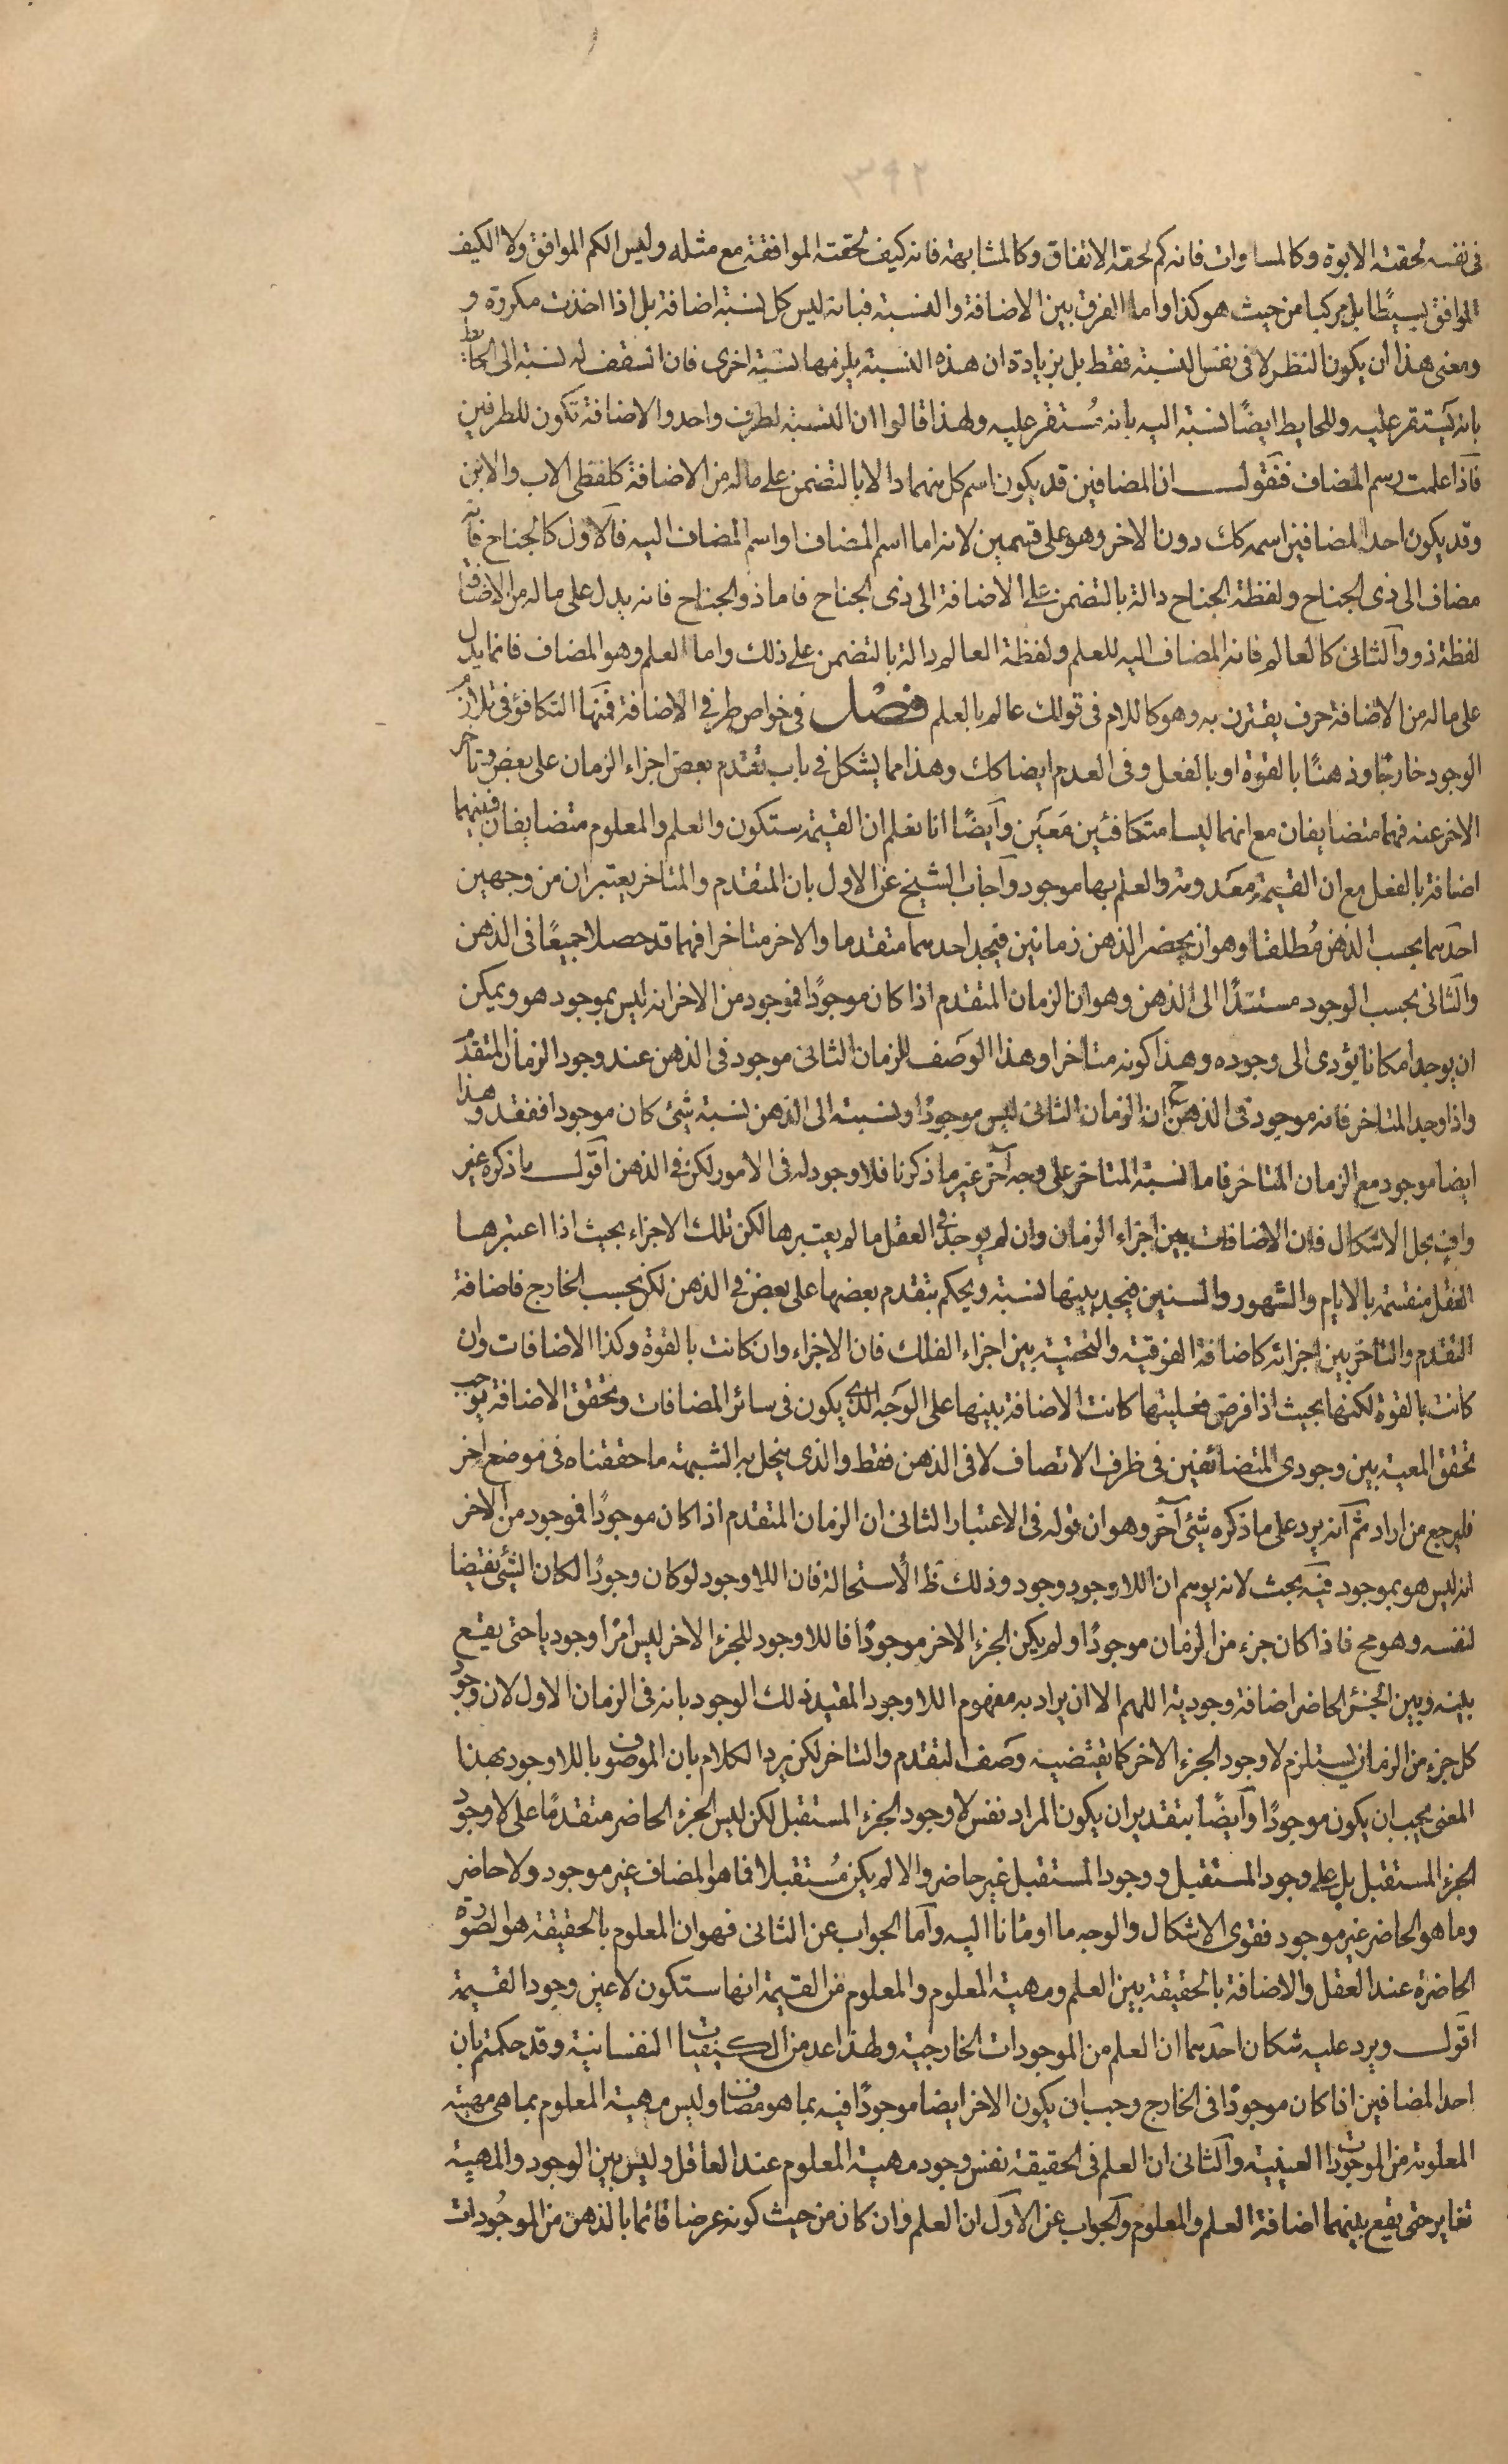 فى نفسه لحقته الابوة وكالمساوات فانه كم لحقه الاتفاق وكالمشابهة فانه كيف لحقته الموافقة مع مثله وليس الكم الموافق ولا الكيف
الموافق بسيطا بل مركبا من حيث هو كذا واما الفرق بين الاضافة والنسبة فبانه ليس كل نسبة اضافة بل اذا اخذت مكررة و
ومعنى هذا ان يكون النظر لا فى نفس النسبة فقط بل بزيادة ان هذه النسبة يلزمها نسبة اخرى فان السقف له نسبة الى الحايط
بانه يستقر عليه وللحايط ايضًا نسبة اليه بانه مُستقر عليه ولهذا قالوا ان النسبة لطرف واحد والاضافة تكون للطرفين
فاذا علمت رسم المضاف فنقول ان المضافين قد يكون اسم كل منهما دالا بالتضمن على ماله من الاضافة كلفظى الاب والابن
وقد يكون احد المضافين اسمه كك دون الاخر وهو على قسمين لانه اما اسم المضاف او اسم المضاف اليه فالاول كالجناح فانه
مضاف الى ذى الجناح ولفظة الجناح دالة بالتضمن على الاضافة الى ذى الجناح فاما ذو الجناح فانه يدل على ماله من الاضافة
لفظة ذو والثانى كالعالم فانه المضاف اليه للعلم ولفظة العالم دالة بالتضمن على ذلك واما العلم وهو المضاف فانما يدل
على ماله من الاضافة حرف يقترن به وهو كاللام فى قولك عالم بالعلم فصل فى خواص طرفى الاضافة فمنها التكافؤ فى تلازم
الوجود خارجًا وذهنًا بالقوة او بالفعل وفى العدم ايضا كك وهذا مما يشكل فى باب تقدم بعض اجزاء الزمان على بعض وتاخر
الاخر عنه فهما متضايفان مع انهما ليسا متكافئين مَعَيَن وايضًا انا نعلم ان القيمة ستكون والعلم والمعلوم متضايفان فبينهما
اضافة بالفعل مع ان القيمة معدومة والعلم بها موجود وآجاب الشيخ عن الاول بان المتقدم والمتاخر يعتبران من وجهين
احدهما بحسب الذهن مُطلقا وهو ان يحضر الذهن زمانين فيجد احدهما متقدما والاخر متاخرا فهما قد حصلا جميعًا فى الذهن
والثانى بحسب الوجود مستندًا الى الذهن وهو ان الزمان المتقدم اذا كان موجودًا فموجود من الاخر انه ليس بموجود هو ويمكن
ان يوجد امكانا يؤدى الى وجوده وهذا كونه متاخرا وهذا الوَصَف للزمان الثانى موجود فى الذهن عند وجود الزمان المتقدم
واذا وجد المتاخر فانه موجود فى الذهن ح ان الزمان الثانى ليس موجودًا ونسبته الى الذهن نسبة شئ كان موجودا ففقد وهذا
ايضا موجود مع الزمان المتاخر فاما نسبة المتاخر على وجه آخر غير ما ذكرنا فلا وجود له فى الامور لكن فى الذهن اقول ما ذكره غير
وافٍ بحل الاشكال فان الاضافات بين اجزاء الزمان وان لم يوجد فى العقل ما لم يعتبرها لكن تلك الاجزاء بحيث اذا اعتبرها
العقل منقسمة بالايام والشهور والسنين فيجد بينها نسبة ويحكم بتقدم بعضها على بعض فى الذهن لكن بحسب الخارج فاضافة
التقدم والتاخر بين اجزائه كاضافة الفوقية والتحتية بين اجزاء الفلك فان الاجزاء وان كانت بالقوة وكذا الاضافات وان
كانت بالقوة لكنها بحيث اذا فرض فعليتها كانت الاضافة بينها على الوَجه الذى يكون فى سائر المضافات وتحقق الاضافة يوجب
تحقق المعية بين وجودى المتضائفين فى ظرف الاتصاف لا فى الذهن فقط والذى ينحل به الشبهة ما حققناه فى موضع اخر
فليرجع من اراد ثم آنه يرد على ما ذكره شئ آخر وهو ان قوله فى الاعتبار الثانى ان الزمان المتقدم اذا كان موجودًا فموجود من الاخر
انه ليس هو بموجود فيه بحث لانه يوهم ان اللاوجود وجود وذلك ظ الاستحالة فان اللاوجود لو كان وجودًا لكان الشئ نقيضا
لنفسه وهو مح فاذا كان جزء من الزمان موجودًا ولم يكن الجزء الاخر موجودًا فاللاوجود للجزء الاخر ليس امرًا وجوديا حتى يقع
بينه وبين الجزء الحاضر اضافة وجودية اللهم الا ان يراد به مفهوم اللاوجود المقيد بذلك الوجود بانه فى الزمان الاول لان وجود
كل جزء من الزمان يستلزم لاوجود الجزء الاخر كما يقتضيه وصَف التقدم والتاخر لكن يرد الكلام بان الموصوف باللاوجود بهذا
المعنى يجب ان يكون موجودًا وآيضًا بتقدير ان يكون المراد نفس لاوجود الجزء المستقبل لكن ليس الجزء الحاضر متقدمًا على لاوجود
الجزء المستقبل بل على وجود المستقبل ووجود المستقبل غير حاضر والا لم يكن مُستقبلا فما هو المضاف غير موجود ولا حاضر
وما هو الحاضر غير موجود فقوى الاشكال والوجه ما اومانا اليه وآما الجواب عن الثانى فهو ان المعلوم بالحقيقة هو الصورة
الحاضرة عند العقل والاضافة بالحقيقة بين العلم ومهية المعلوم والمعلوم من القيمة انها ستكون لا عين وجود القيمة
اقول ويرد عليه شكان احدهما ان العلم من الموجودات الخارجية ولهذا عد من الكيفيات النفسانية وقد حكمتم بان
احد المضافين اذا كان موجودًا فى الخارج وجب ان يكون الاخر ايضا موجودًا فيه بما هو مضاف وليس مهية المعلوم بما هى مهية
المعلومة من الموجودات العينية وآلثانى ان العلم فى الحقيقة نفس وجود مهية المعلوم عند العاقل وليس بين الوجود والمهية
تغاير حتى يقع بينهما اضافة العلم والمعلوم وآلجواب عن الآول ان العلم وان كان من حيث كونه عرضا قائما بالذهن من الموجُودات